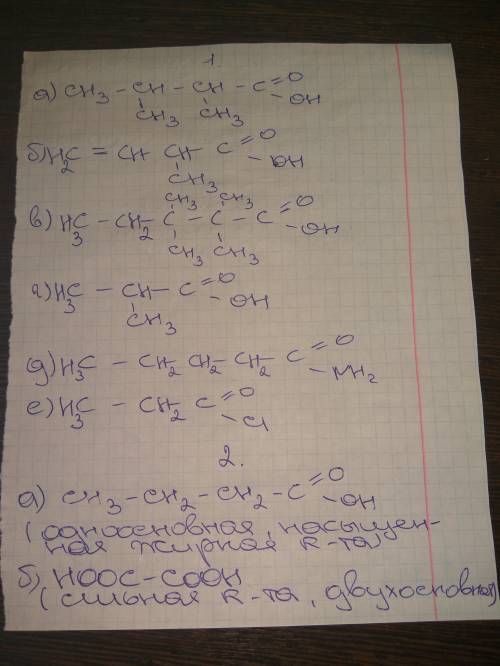 1.
а) CH3 – CH – CH – C =O
– OH
CH3 CH3
б) H2C = CH CH C =O
– OH
CH3
CH3 CH3
в) H3C – CH2 C – C – C =O
– OH
CH3 CH3
г) H3C – CH – C =O
– OH
CH3
д) H3C – CH2 CH2 CH2 C =O
– NH2
е) H3C – CH2 C =O
– Cl
2.
а) CH3 – CH2 – CH2 – C =O
– OH
(одноосновная, насыщен-
ная жирная к-та)
б) HOOC – COOH
(сильная к-та, двухосновная)